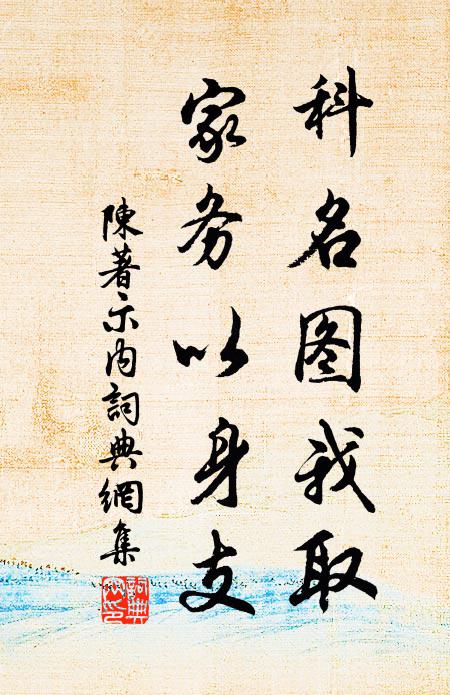 科名图我取
家务以身支
陳著示内詞典網集